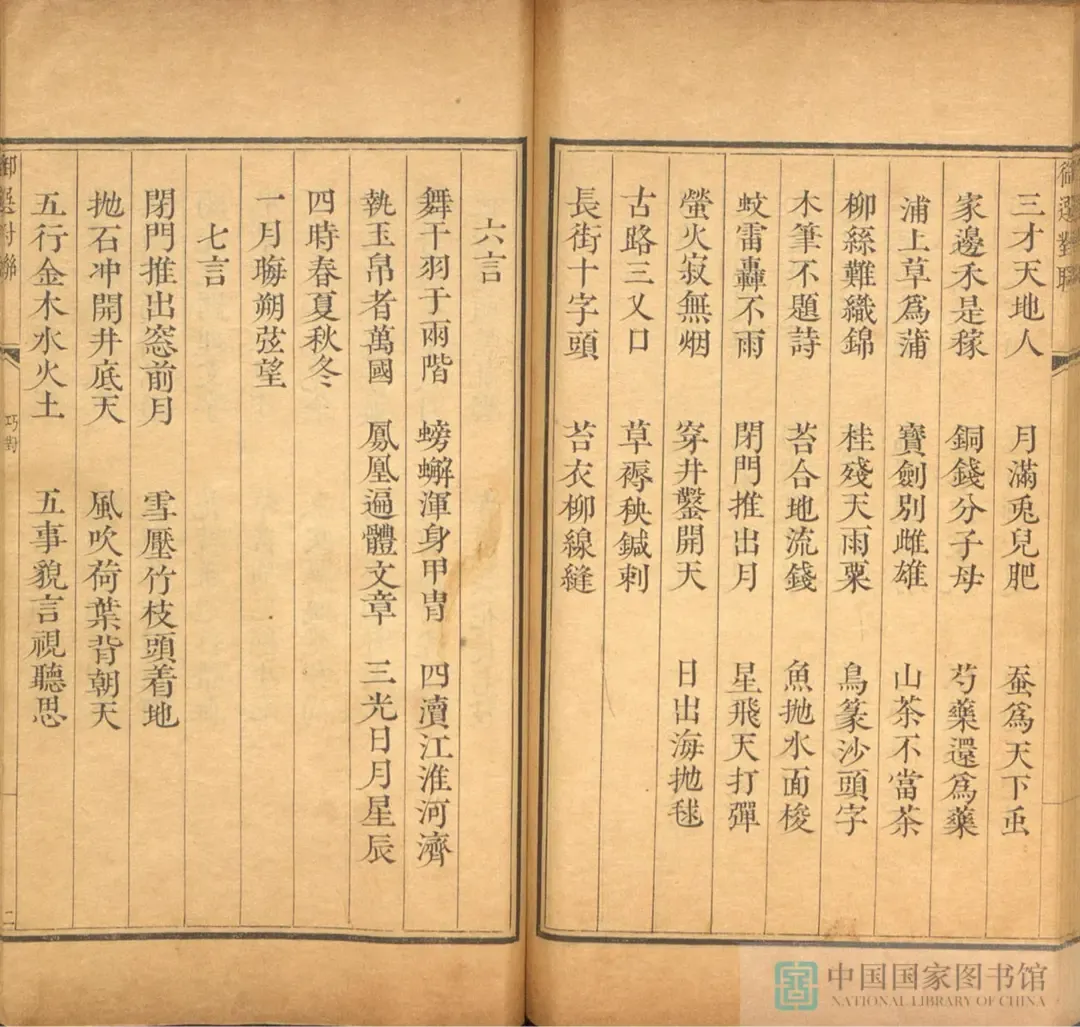 御選對聯
三才天地人 月滿兎兒肥 蚕爲天下虫
家邊禾是稼 銅錢分子母 芍藥還爲藥
浦上草爲蒲 寶劍別雌雄 山茶不當茶
柳絲難織錦 桂殘天雨粟 鳥篆沙頭字
木筆不題詩 苔合地流錢 魚抛水面梭
蚊雷轟不雨 閉門推出月 星飛天打彈
螢火寂無烟 穿井鑿開天 日出海抛毬
古路三叉口 草褥秧鍼刺
長街十字頭 苔衣柳線縫
六言
舞干羽于兩階 螃蠏渾身甲冑 四瀆江淮河濟
執玉帛者萬國 鳳凰遍體文章 三光日月星辰
四時春夏秋冬
一月晦朔弦望
七言
閉門推出窓前月 雪壓竹枝頭着地
抛石冲開井底天 風吹荷葉背朝天
五行金木水火土 五事貌言視聽思
御選對聯 巧對 二
中国国家图书馆
NATIONAL LIBRARY OF CHINA